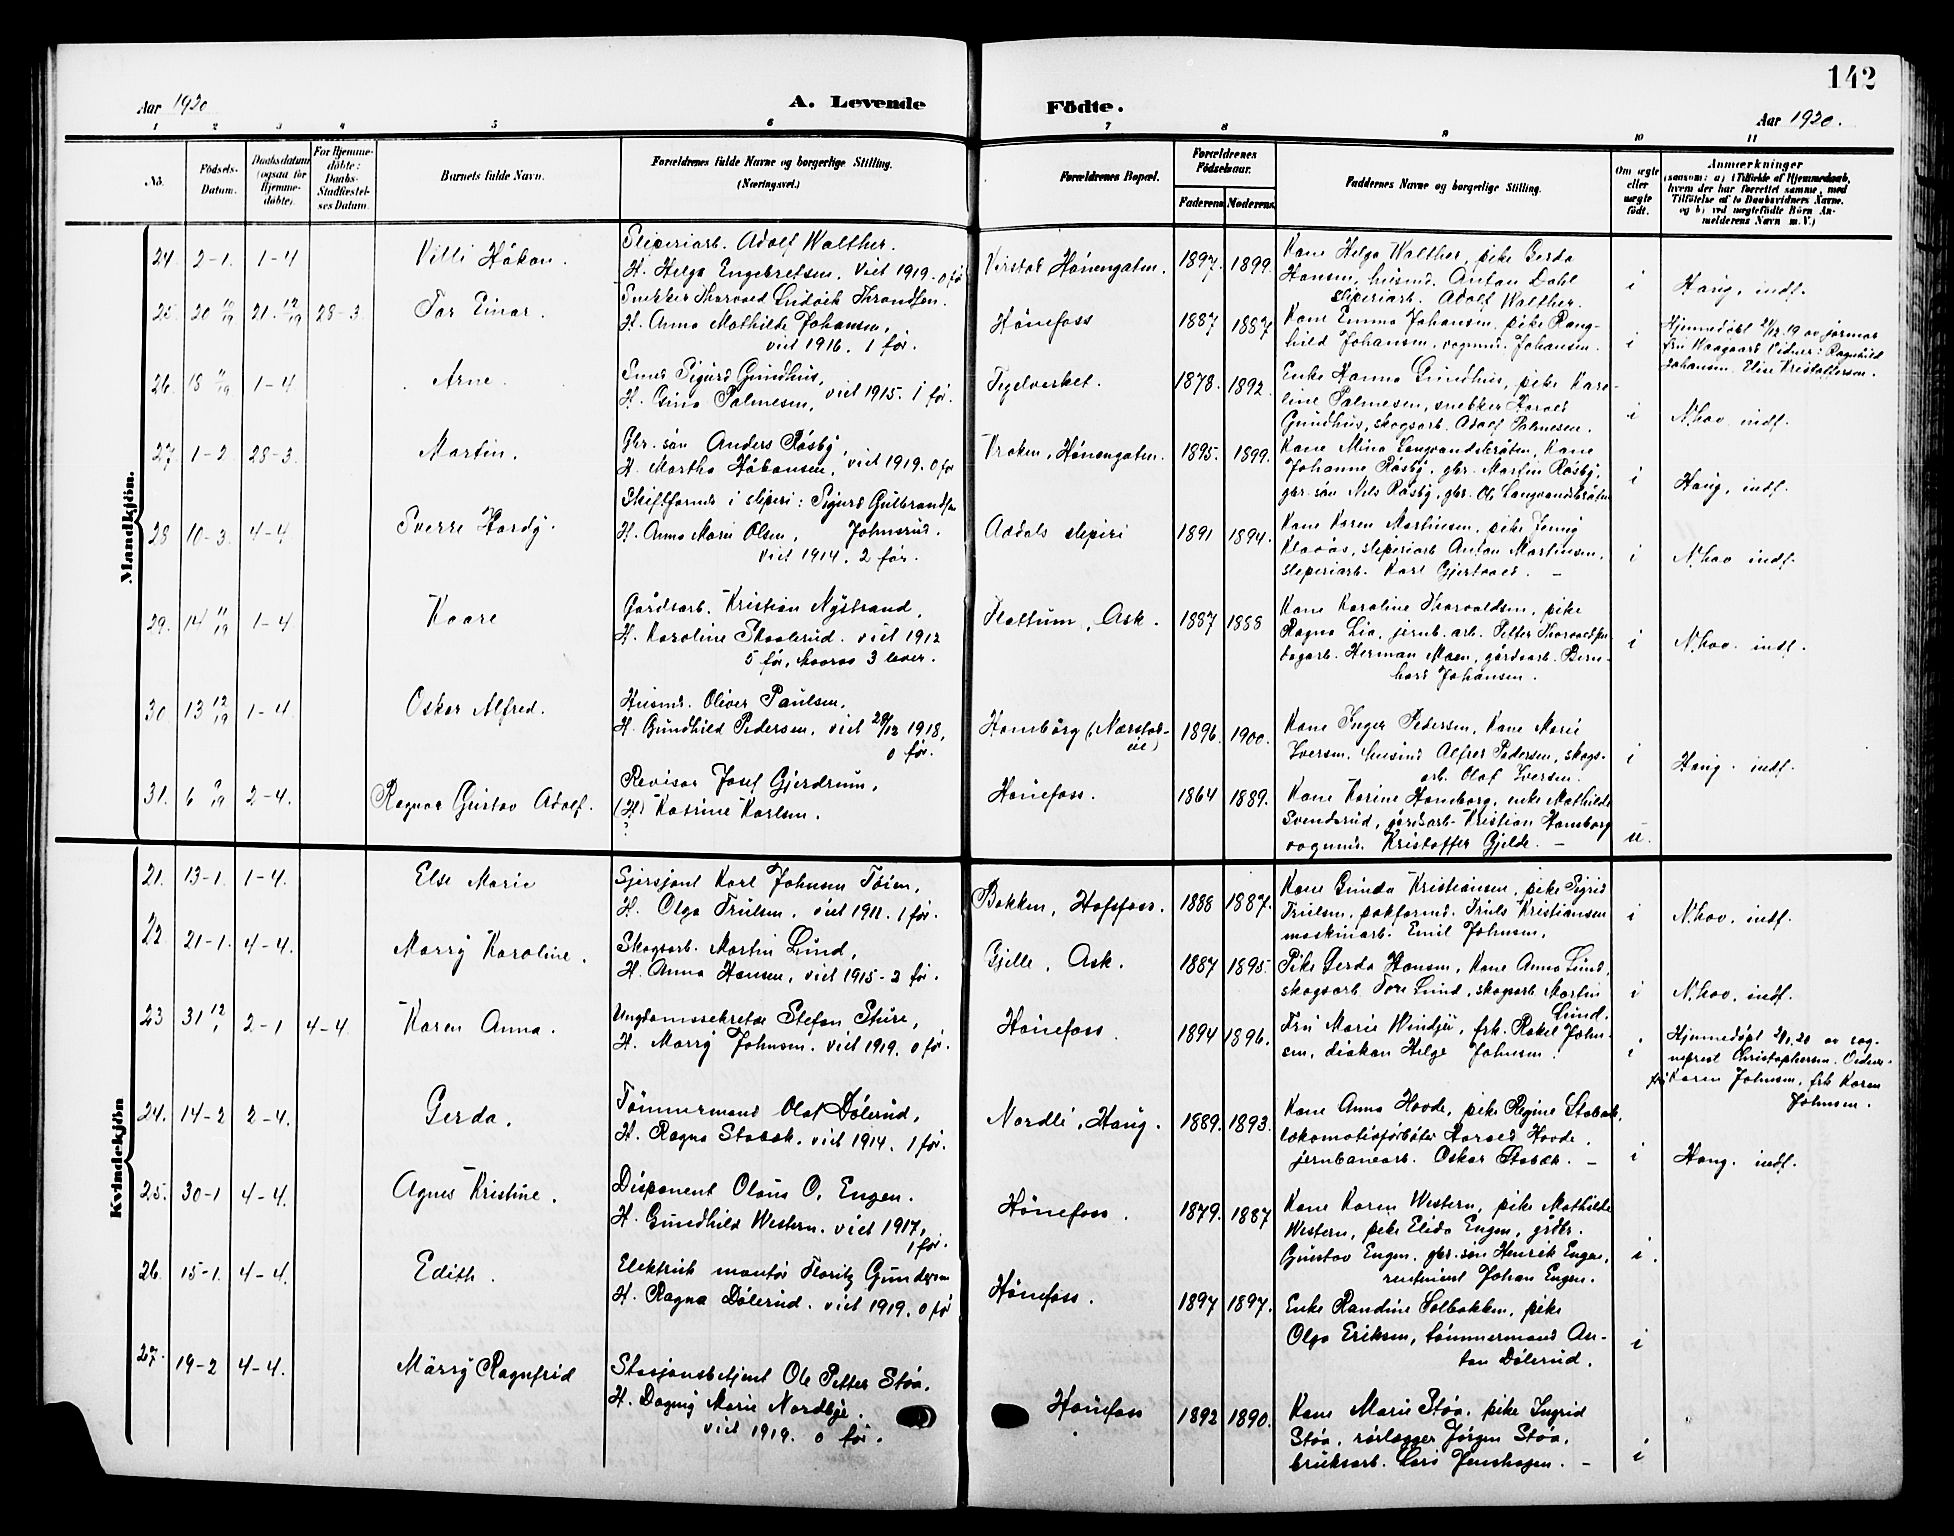 142
Aar 1920
A. Levende Födte.
Aar 1920.
1 2 3 4 5 6 7 8 9 10 11
No.
Födsels-
Datum.
Daabsdatum
(ogsaa for
Hjemme-
döbte).
For Hjemme-
döbte:
Daabs-
Stadfæstel-
ses Datum.
Barnets fulde Navn.
Forældrenes fulde Navne og borgerlige Stilling.
(Næringsvei.)
Forældrenes Bopæl.
Forældrenes
Födselsaar.
Faderens Moderens
Faddernes Navne og borgerlige Stilling.
Om ægte
eller
uægte
födt.
Anmærkninger
(saasom: a) i Tilfælde af Hjemmedaab,
hvem der har forrettet samme, med
Tilföielse af to Daabsvidners Navne,
og b) ved uægtefödte Börn An-
melderens Navn m. V.)
Mandkjön.
24. 2-1. 1-4
Villi Håkon.
Sliperiarb. Adolf Walther.
H. Helga Engebretsen. viet 1919. 0 før
Hönengaten.
1897. 1899.
Kone Helga Walther, pike Gerda
Hansen, husmd. Anton Dahl
sliperiarb. Adolf Walther.
i
Haug, indf.
25. 20 12/19 21. 12/19 28-3.
Tor Einar.
Snekker Thorvald Ludvik Throndsen.
H. Anna Mathilde Johansen,
viet 1916. 1 før.
Hönefoss
1887 1887
Kone Emma Johansen, pike Ragn-
hild Johansen, vognmd. Johansen.
i
Hjemmedöbt 21/12.19 av jormor
fru Haagaard Vidner: Ragnhild
Johansen. Elise Kristoffersen.
26. 18 11/19 1-4
Arne.
Smed Sigurd Gundhus,
H. Gina Palmesen, viet 1915. 1 før.
Teglverket.
1878. 1892.
Enke Hanna Gundhus, pike Karo-
line Palmesen, snekker Harald
Gundhus, skogsarb. Adolf Palmesen.
i
N.hov indf.
27. 1-2 28-3.
Martin.
Gbr. søn Anders Røsby,
H. Martha Håkonsen, viet 1919. 0 før
Kroken, Hönengaten.
1895. 1899.
Kone Mina Langvandsbråten, Kone
Johanne Røsby, gbr. Martin Røsby,
gbr. søn Nils Røsby, gbr. Ole Langvandsbråten
i
Haug, indf.
28 10-3. 4-4.
Sverre Hardy.
Skiftformd. i sliperi: Sigurd Gulbrandsen
H. Anna Marie Olsen, Johnsrud.
viet 1914. 2 før.
Aadals sliperi
1891 1894.
Kone Karen Martinsen, pike Jenny
Klaaås, sliperiarb Anton Martinsen,
sliperiarb. Karl Gjertaas. —
i
N.hov indf.
29. 14 11/19 1-4
Kaare
Gårdsarb. Kristian Nystrand,
H. Karoline Skaalerud. viet 1912
5 før, hvorav 3 lever.
Flattum, Ask.
1887 1888
Kone Karoline Thorvaldsen, pike
Ragna Lia, jernb. arb. Petter Thorvaldsen
bogarb. Herman Moen, gårdsarb. Bern-
hard Johansen.
i
N.hov. indf.
30. 13 12/19 1-4.
Oskar Alfred.
Husmd. Oliver Paulsen,
H. Gundhild Pedersen, viet 28/12 1918,
0 før.
Homborg
1896. 1900.
Kone Inger Pedersen, Kone Marie
Iversen, husmd Alfred Pedersen, skogs-
arb. Olaf Iversen.
i
Haug. indf.
31. 6 9/19 2-4.
Ragnar Gustav Adolf.
Revisor Josef Gjerdrum,
(H) Katrine Karlsen.
?
Hönefoss.
1864 1889.
Kone Karine Homborg, enke Mathilde
Svendsrud, jordarb. Kristian Homborg
vognmd. Kristoffer Gjelde. —
u.
Kvindekjön
21. 13-1. 1-4.
Else Marie
Sjersjant Karl Johnsen Töien,
H. Olga Trulsen. viet 1911. 1 før.
Bakken, Hofsfoss.
1888 1887.
Kone Gunda Kristiansen, pike Sigrid
Trulsen, pakformd. Truls Kristiansen
maskinarb. Emil Johnsen.
i
N.hov, indf.
22 21-1. 4-4.
Marry Karoline.
Skogsarb. Martin Lund,
H. Anna Hansen, viet 1915 - 2 før.
Gjelle, Ask.
1887 1895.
Pike Gerda Hansen, Kone Anna Lund,
skogsarb Tore Lund, skogsarb Martin
Lund.
i
N.hov, indf.
23 31 12/ 2-1 4-4.
Karen Anna.
Ungdomssekretær Stefan Sture,
H. Marry Johnsen. viet 1919. 0 før.
Hönefoss.
1894 1896.
Fru Marie Windju, frk. Rakel John-
sen, diakon Helge Johnsen.
i
Hjemmedöpt 2/1.20 av sog-
neprest Christophersen. Vidner
fru Karen Johnsen, frk Karen
Johnsen.
24. 14-2 2-4.
Gerda.
Tömmermand Olaf Dölerud,
H. Ragna Stabæk. viet 1914. 1 før.
Nordli, Haug.
1889. 1893.
Kone Anna Hovde, pike Regine Stabæk,
lokomotivförböter Harald Hovde.
jernbanearb. Oskar Stabæk. —
i
Haug. indf.
25. 30-1 4-4.
Agnes Kristine.
Disponent Olaus O. Engen.
H. Gundhild Western. viet 1917,
1 før.
Hönefoss.
1879. 1887
Kone Karen Western, pike Mathilde
Western, pike Elida Engen, grdbr.
Gustav Engen. gbr. søn Henrik Engen,
rentenist Johan Engen.
i.
26. 15-1. 4-4.
Edith.
Elektrisk montör Floritz Gundersen
H. Ragna Dölerud. viet 1919. 0 før
Hönefoss.
1897 1897.
Enke Randine Solbakken, pike
Olga Eriksen, tömmermand An-
ton Dölerud.
i
27. 19-2 4-4.
Marry Ragnfrid
Stasjonsbetjent Ole Petter Stöa.
H. Dagny Marie Nordbye.
viet 1919. 0 før.
Hönefoss
1892 1890.
Kone Marie Stöa, pike Ingrid
Stöa, rörlægger Jörgen Stöa,
bruksarb. Lars Jenshagen. —
i